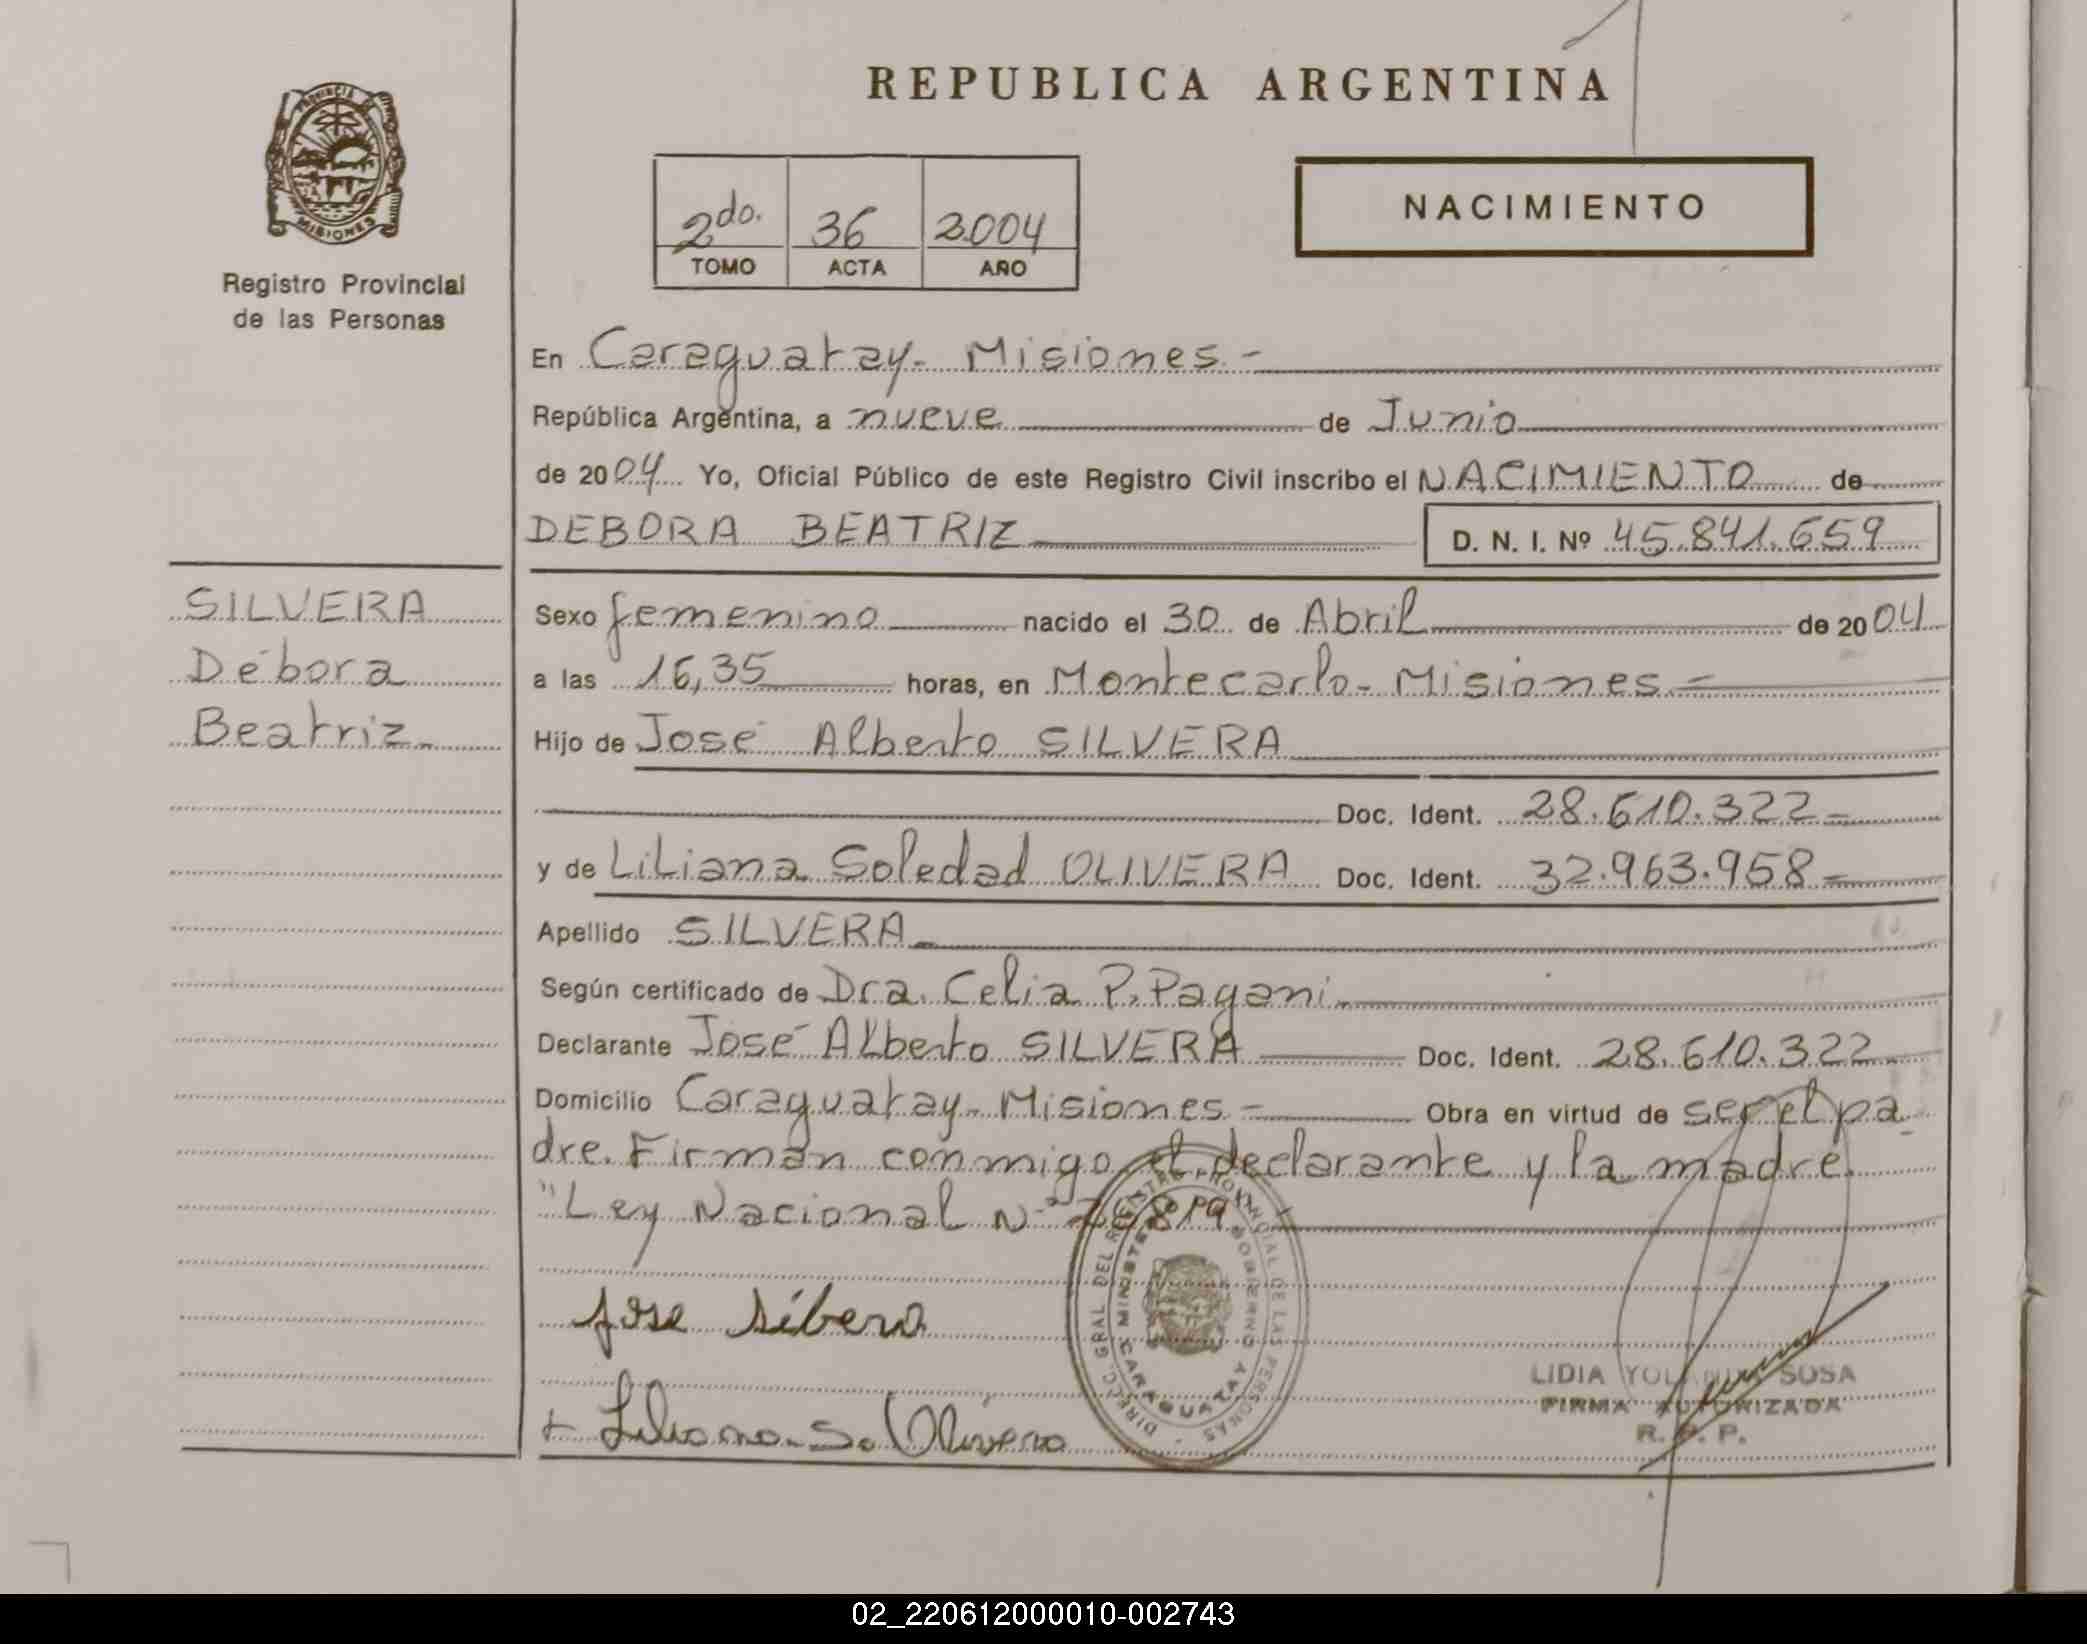 REPUBLICA ARGENTINA
PROVINCIA DE
MISIONES
Registro Provincial
de las Personas
2do. 36 2.004
TOMO ACTA AÑO
NACIMIENTO
En Caraguatay - Misiones. -
República Argentina, a nueve de Junio
de 2004 Yo, Oficial Público de este Registro Civil inscribo el NACIMIENTO de
DEBORA BEATRIZ D. N. I. Nº 45.841.659
SILVERA
Débora
Beatriz.-
Sexo femenino nacido el 30 de Abril de 2004
a las 16,35 horas, en Montecarlo - Misiones. -
Hijo de José Alberto SILVERA
Doc. Ident. 28.610.322 -
y de Liliana Soledad OLIVERA Doc. Ident. 32.963.958 -
Apellido SILVERA
Según certificado de Dra. Celia P. Pagani.
Declarante José Alberto SILVERA Doc. Ident. 28.610.322
Domicilio Caraguatay - Misiones. - Obra en virtud de ser el pa
dre. Firman conmigo el declarante y la madre.
"Ley Nacional Nº
DIRECC. GRAL. DEL REGISTRO PROVINCIAL DE LAS PERSONAS
MINISTERIO GOBIERNO
CARAGUATAY
Jose
Liliana S. Olivera
LIDIA SOSA
FIRMA AUTORIZADA
R. P. P.
02_220612000010-002743